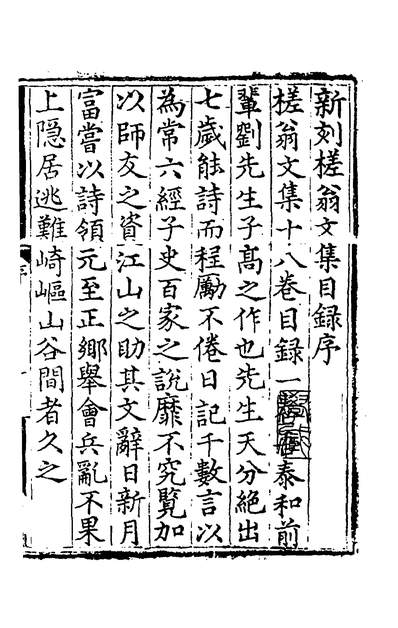 新刻槎翁文集目録序
槎翁文集十八巻目録一泰和前
軰劉先生子髙之作也先生天分絶出
七歲能詩而程勵不倦日記千數言以
為常六經子史百家之說靡不究覧加
以師友之資江山之助其文辭日新月
富嘗以詩領元至正鄉舉會兵亂不果
上隠居逃難崎嶇山谷間者久之
序